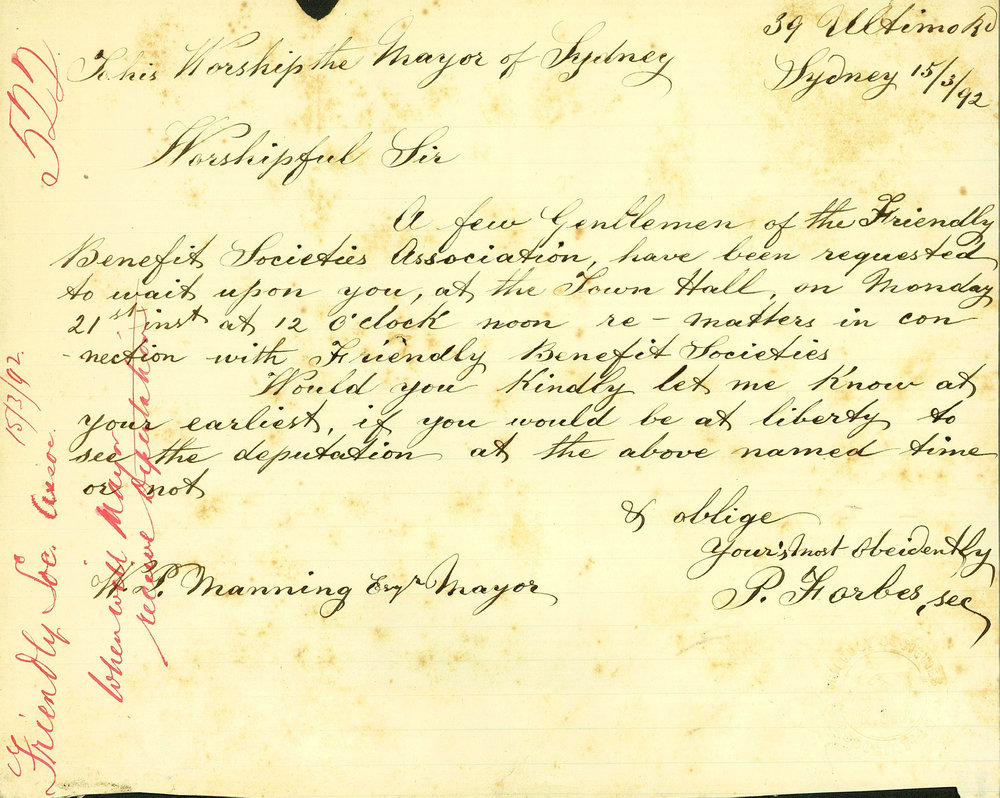 39 Ultimo Rd
To his Worship the Mayor of Sydney
Sydney 15/3/92
Worshipful Sir
A few Gentlemen of the Friendly
Benefit Societies Association, have been requested
to wait upon you, at the Town Hall, on Monday
21st inst at 12 O'clock noon re - matters in con
-nection with Friendly Benefit Societies
Would you Kindly let me Know at
your earliest, if you would be at liberty to
see the deputation at the above named time
or not
& oblige
Your's most Obeidently
W. P. Manning Esqr Mayor
P. Forbes, sec
522
Friendly Soc. Assoc. 15/3/92.
When will Mayor
receive deputation